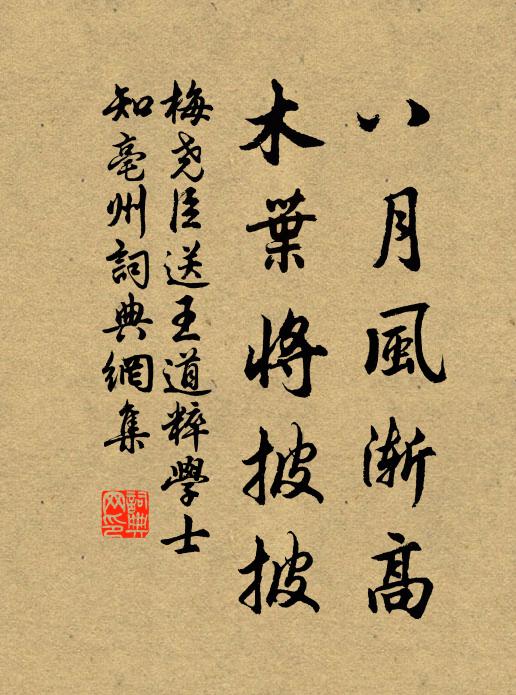 八月風漸高
木葉將披披
梅堯臣送王道粹學士
知亳州詞典網集
詞典网印